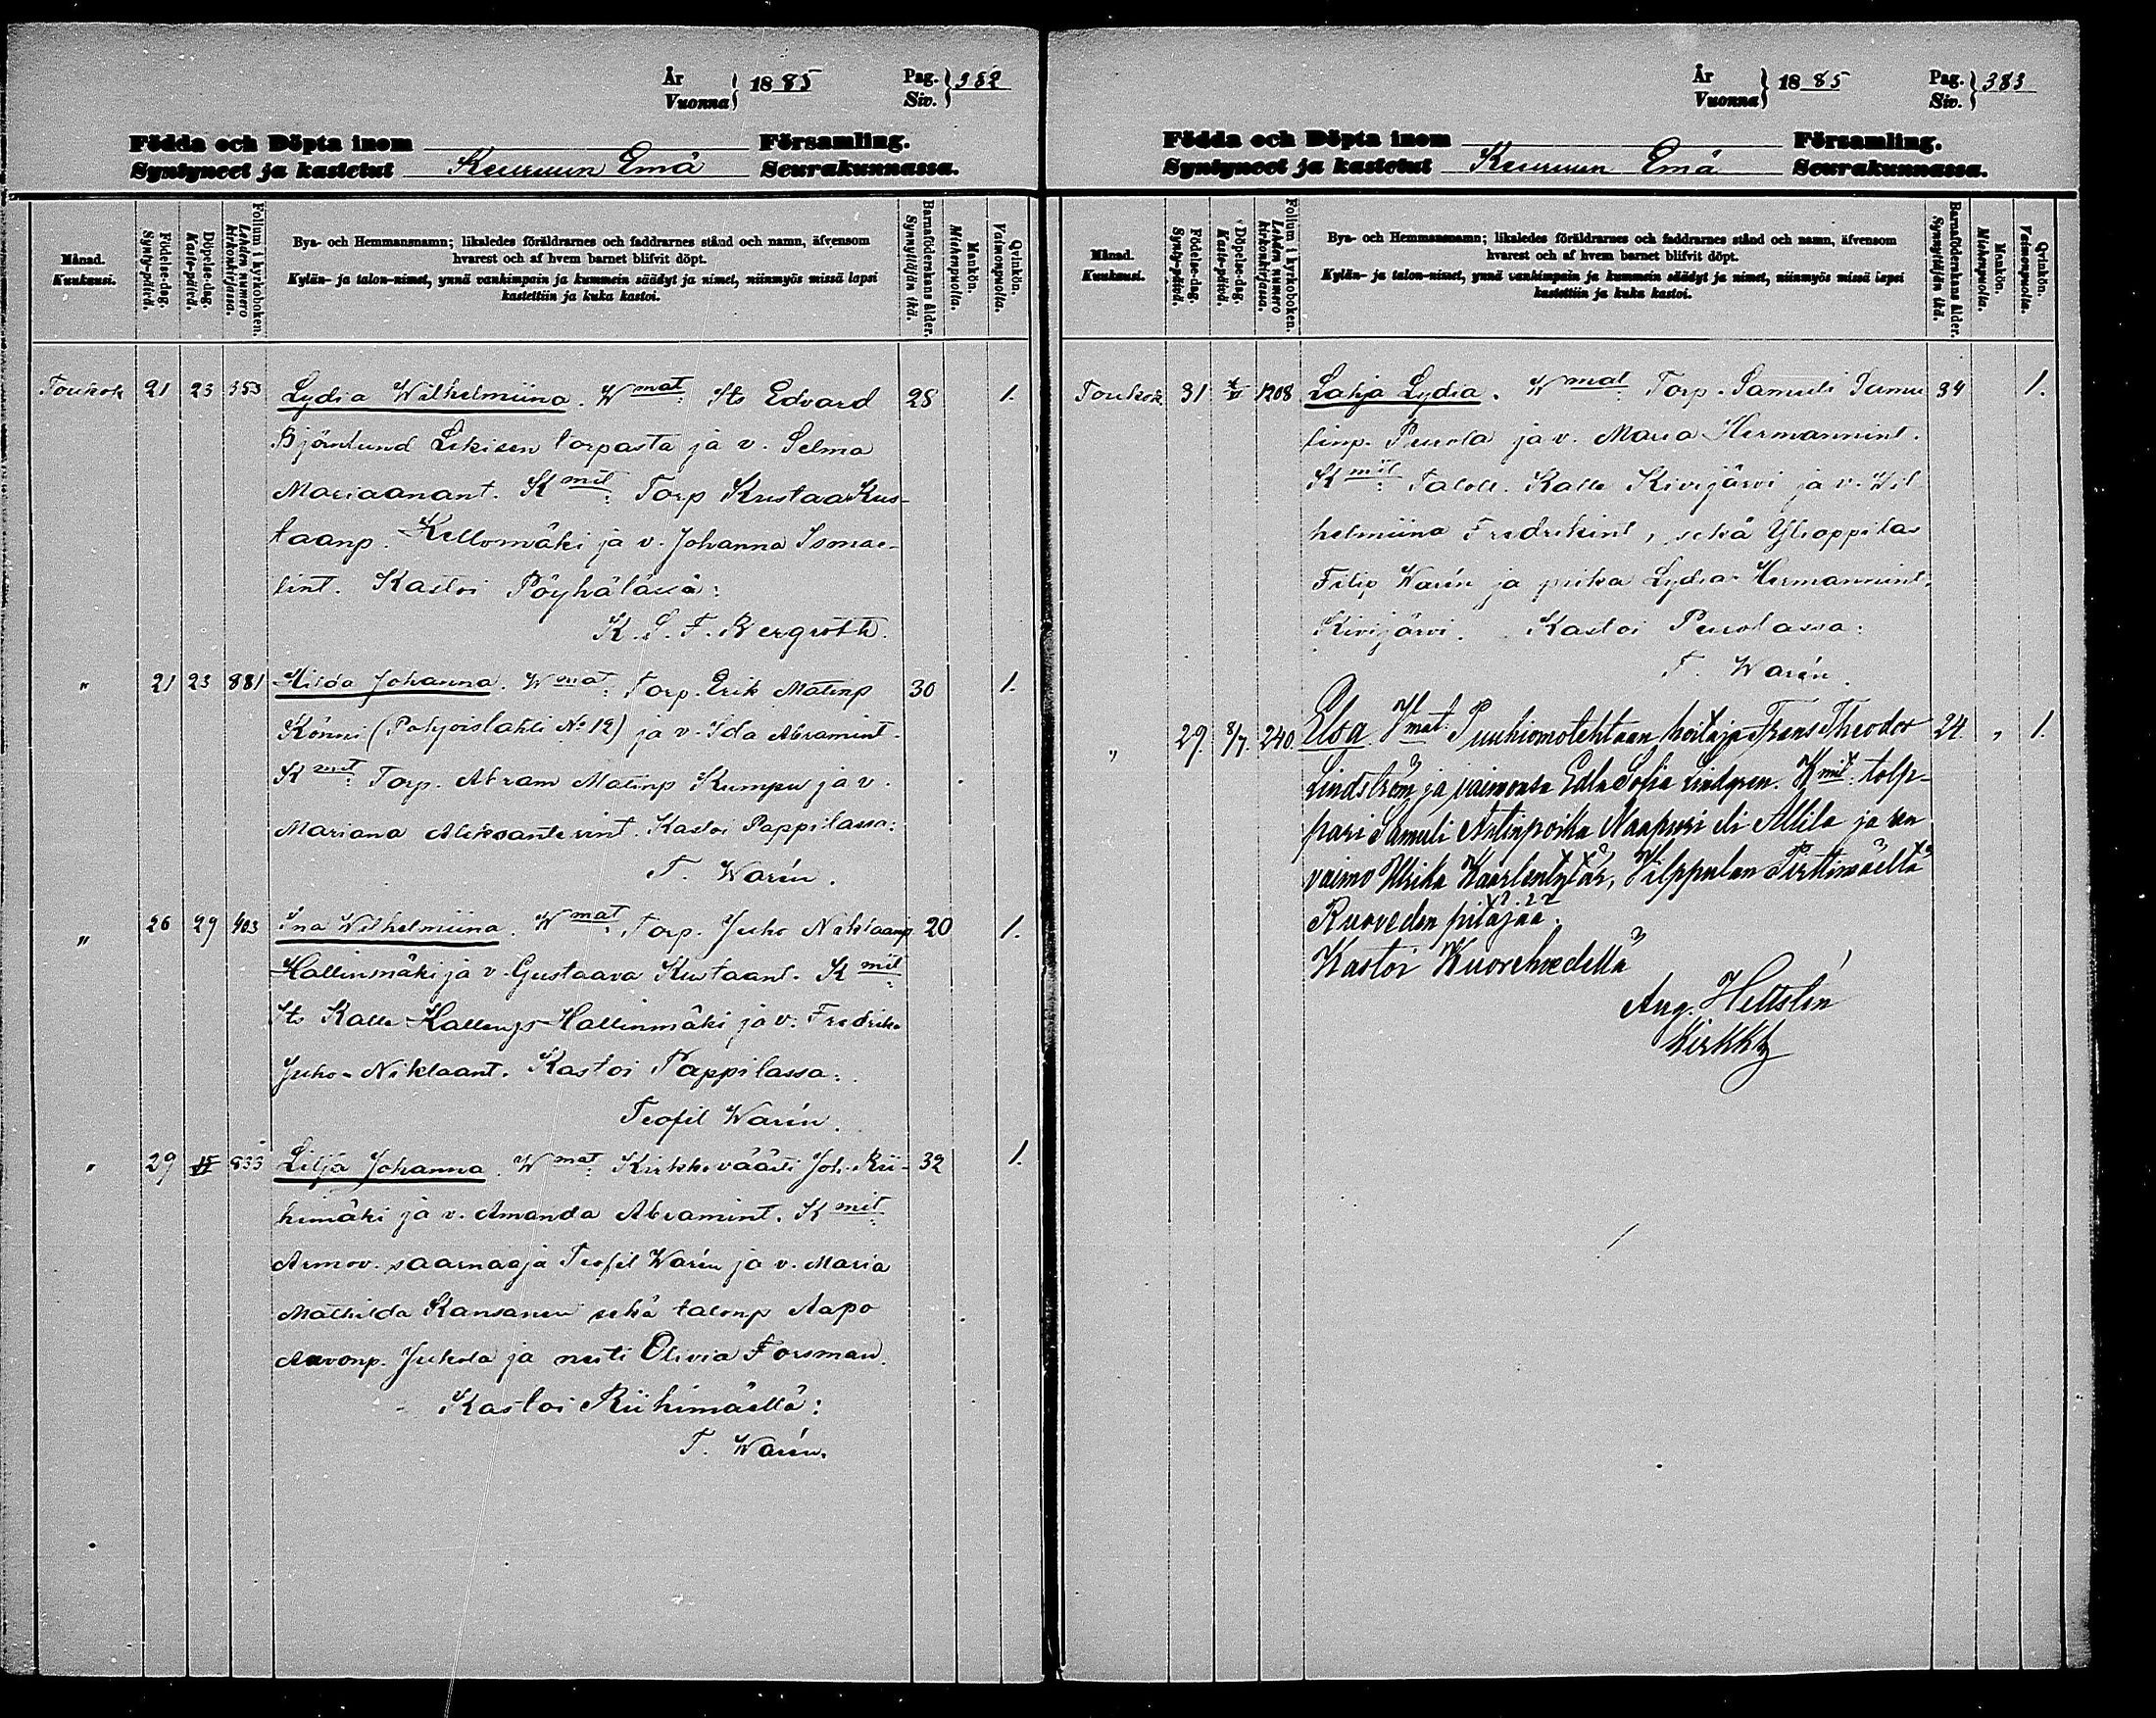 År
Vuonna } 1885 Pag.
Siv. } 382
Födda och Döpta inom Församling.
Syntyneet ja kastetut Keuruun Emä Seurakunnassa.
Månad.
Kuukausi.
Födelse-dag.
Synty-päivä.
Döpelse-dag.
Kaste-päivä.
Folium i kyrkoboken.
Lehden numero kirkonkirjassa.
Bya- och Hemmansnamn; likaledes föräldrarnes och faddrarnes stånd och namn, äfvensom
hvarest och af hvem barnet blifvit döpt.
Kylän- ja talon-nimet, ynnä vanhimpain ja kummein säädyt ja nimet, niinmyös missä lapsi
kastettiin ja kuka kastoi.
Barnaföderskans ålder.
Synnyttäjän ikä.
Mankön.
Miehenpuolta.
Qvinkön.
Vaimonpuolta.
Toukok 21 23 353 Lydia Wilhelmiina. Wmat: Its Edvard 28 1.
Björklund Lekisen torpasta ja v. Selma
Mariaanant. Kmit: Torp Kustaa Kus-
taanp. Kellomäki ja v. Johanna Ismae-
lint. Kastoi Pöyhölässä:
K. L. F. Bergroth.
" 21 23 881 Hilda Johanna. Wmat: Torp. Erik Matinp 30 1.
Könni (Pohjoislahti No 12) ja v. Ida Abramint.
Kmit: Torp. Abram Matinp Kumpu ja v.
Mariana Aleksanterint. Kastoi Pappilassa:
T. Warén.
" 26 29 403 Ina Wilhelmiina. Wmat: Torp. Juho Niklaanp 20 1.
Hallinmäki ja v. Gustaava Kustaant. Kmit:
Its Kalle Kallenp Hallinmäki ja v. Fredrika
Juho-Niklaant. Kastoi Pappilassa:
Teofil Warén.
" 29 833 Lilja Johanna. Wmat: Kirkkoväärti Joh. Rii- 32 1.
himäki ja v. Amanda Abramint. Kmit:
Armov. saarnaaja Teofil Warén ja v. Maria
Mathilda Kansanen sekä talonp Aapo
Aavonp. Jukola ja neiti Olivia Forsman.
Kastoi Riihimäellä:
T. Warén.
År
Vuonna } 1885 Pag.
Siv. } 383
Födda och Döpta inom Församling.
Syntyneet ja kastetut Keuruun Emä Seurakunnassa.
Månad.
Kuukausi.
Födelse-dag.
Synty-päivä.
Döpelse-dag.
Kaste-päivä.
Folium i kyrkoboken.
Lehden numero kirkonkirjassa.
Bya- och Hemmansnamn; likaledes föräldrarnes och faddrarnes stånd och namn, äfvensom
hvarest och af hvem barnet blifvit döpt.
Kylän- ja talon-nimet, ynnä vanhimpain ja kummein säädyt ja nimet, niinmyös missä lapsi
kastettiin ja kuka kastoi.
Barnaföderskans ålder.
Synnyttäjän ikä.
Mankön.
Miehenpuolta.
Qvinkön.
Vaimonpuolta.
Toukok 31 1208 Lahja Lydia. Wmat: Torp. Samuli Samu 34 1.
linp. Puuola ja v. Maria Hermannint.
Kmit: Taloll. Kalle Kivijärvi ja v. Wil
helmiina Fredrikint, sekä Ylioppilas
Filip Warén ja piika Lydia Hermannint.
Kivijärvi. Kastoi Puuolassa:
T. Warén.
" 29 8/7. 240. Elsa. Vmat: Puuhiomotehtaan hoitaja Frans Theodor 24 " 1.
Lindström ja vaimonsa Edla Sofia Lindgren. Kmit: tolp-
pari Samuli Antinpoika Naapuri eli Allila ja sen
vaimo Ulrika Kaarlentytär, Vilppulan Pirttimäeltä
Ruoveden pitäjää.
Kastoi Kuorehvedellä
Aug. Hellstén
Kirkkh